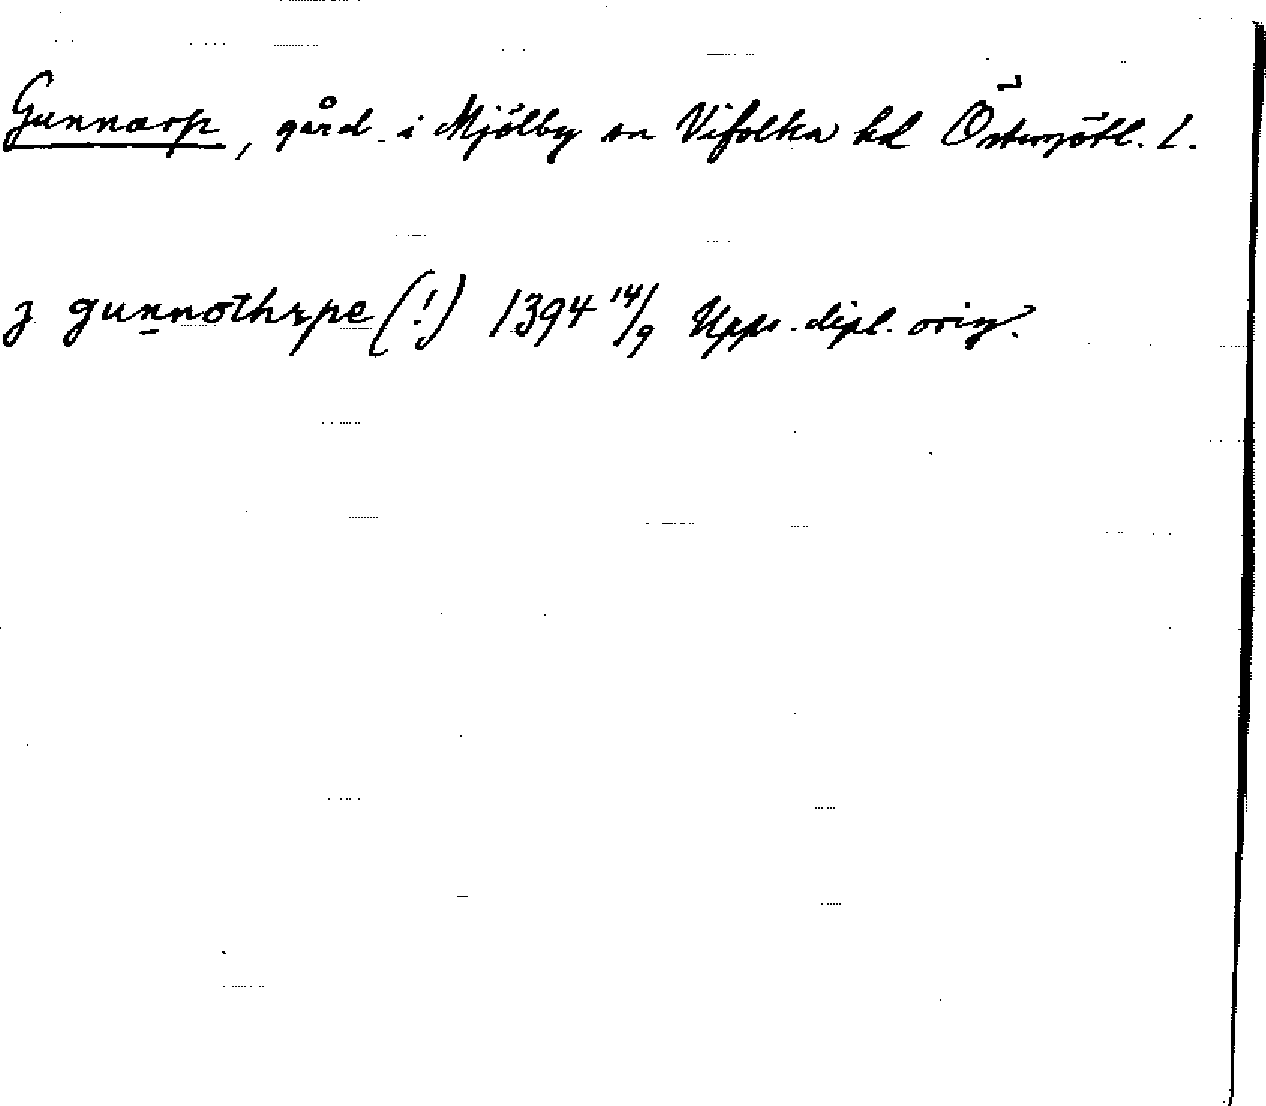 Gunnarp, gård i Mjölby sn Vifolka hd Östergötl. l.
j gunnothrpe (!) 1394 14/9 Upps. dipl. orig.